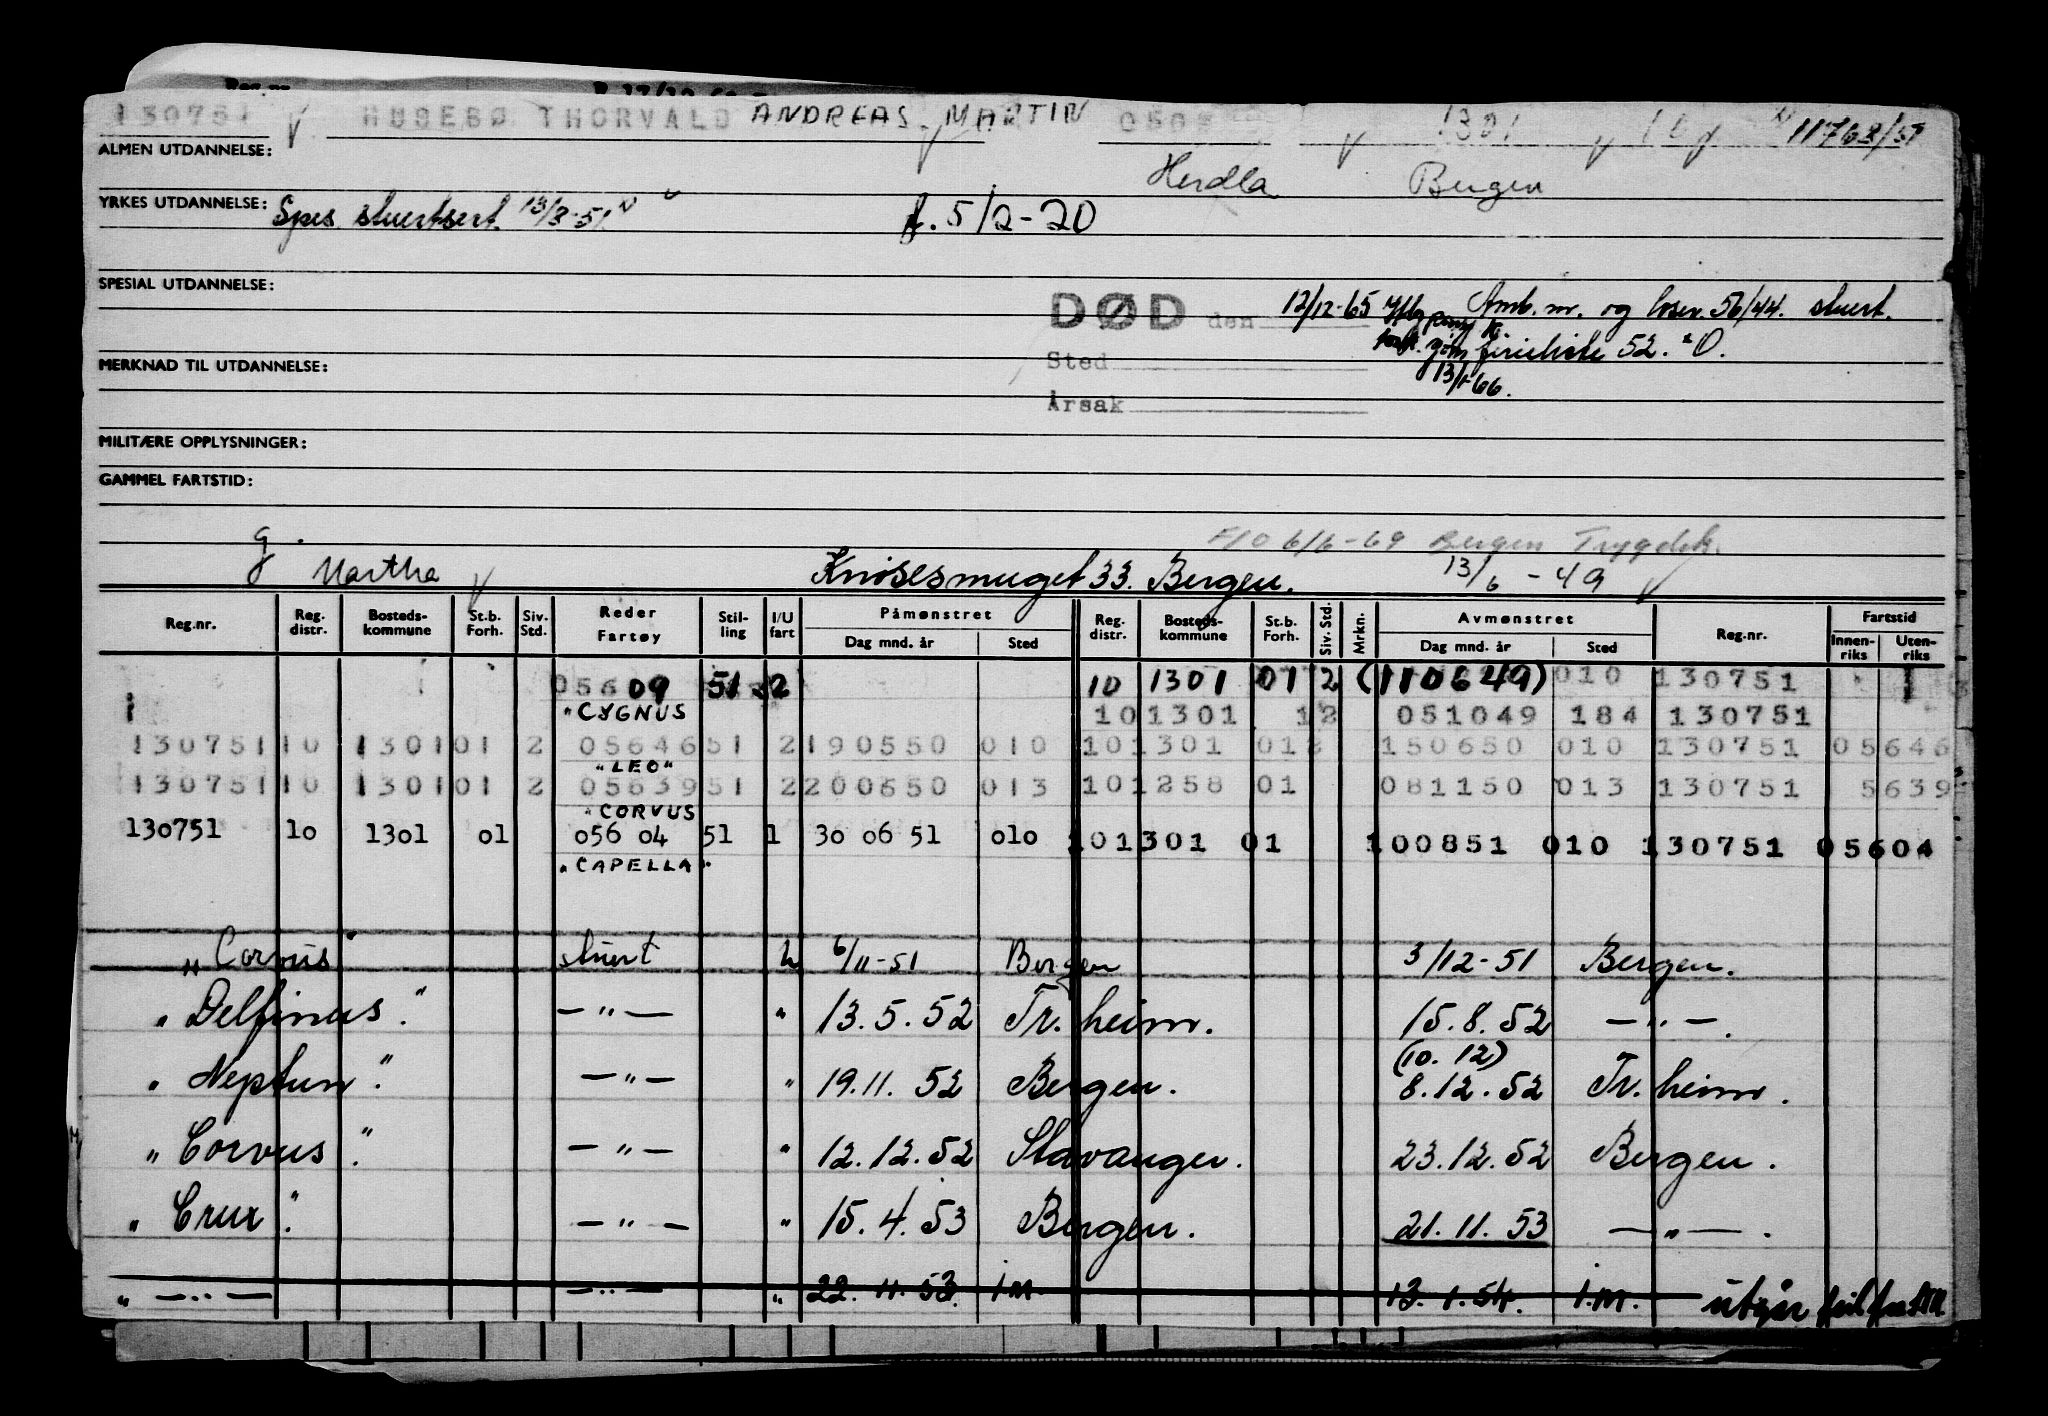 130751 HUSEBØ THORVALD ANDREAS MARTIN 1301 11768/51
ALMEN UTDANNELSE: Herdla Bergen
YRKES UTDANNELSE: Spes. stuertsert. 13/3-51 f. 5/2-20
SPESIAL UTDANNELSE:
DØD den 12/12-65 Amb. nr. og losev. 56/44. stuert.
ferieliste 52. O.
Sted
MERKNAD TIL UTDANNELSE: 13/1-66.
Årsak
MILITÆRE OPPLYSNINGER:
GAMMEL FARTSTID:
g. F/O 6/6-69 Bergen Trygdek.
Martha Knøsesmuget 33. Bergen. 13/6-49
Reg.nr. Reg. distr. Bosteds- kommune St.b. Forh. Siv. Std. Reder Fartøy Stil- ling I/U fart Påmønstret Dag mnd. år Sted Reg. distr. Bosteds- kommune St.b. Forh. Siv. Std. Mrkn. Avmønstret Dag mnd. år Sted Reg.nr. Fartstid Innen- riks Uten- riks
05609 51 2 10 1301 01 2 (110649) 010 130751
"CYGNUS 10 1301 12 051049 184 130751
130751 10 1301 01 2 05646 51 2 190550 010 10 1301 01 2 150650 010 130751 05646
"LEO"
130751 10 1301 01 2 05639 51 2 200650 013 10 1258 01 081150 013 130751 5639
"CORVUS
130751 10 1301 01 056 04 51 1 30 06 51 010 10 1301 01 100851 010 130751 05604
"CAPELLA"
"Corvus" stuert U 6/11-51 Bergen 3/12-51 Bergen.
"Delfinus". —"— " 13.5.52 Tr.heim. 15.8.52 —"—.
(10.12)
"Neptun". —"— " 19.11.52 Bergen. 8.12.52 Tr.heim.
"Corvus". —"— " 12.12.52 Stavanger. 23.12.52 Bergen.
"Crux". —"— " 15.4.53 Bergen. 21.11.53 —"—.
" —"— —"— " 22.11.53. i.m. 13.1.54. i.m. utgår